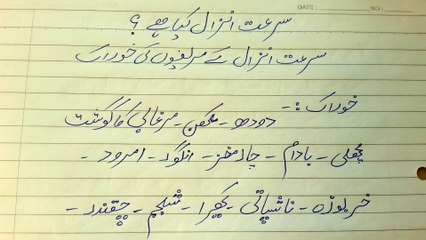 سرعت انزال کیا ہے ؟
سرعت انزال کے مریضوں کی خوراک
DATE: NO.
خوراک :-
دودھ - مکھن - مرغابی کا گوشت
مچھلی - بادام - چار مغز - انگور - امرود -
خربوزہ - ناشپاتی - کھیرا - شلجم - چقندر -